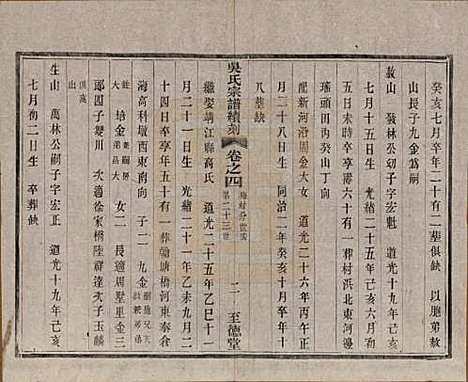 癸亥七月卒年二十有二塟俱缺 以胞弟赦
山長子九金爲嗣
赦山 發林公幼子字宏魁 道光十九年己亥
七月十五日生 光緒二十五年己亥六月
五日未時卒年六十有一葬村浜北東河邊
瑤頭田內癸山丁向
配新河沿周金大女 道光二十六年丙午正
月二十八日生 同治二年癸亥十月卒年十
八塟缺
吳氏宗譜續刻
卷之四
第二十三世
二 至德堂
繼娶靖江縣高氏 道光二十五年乙巳十一
月二十一日生 光緒二十一年乙未九月二
十四日卒年五十有一葬塘橋河東奉侖
海高科墩西東南向 子二 九金
培金 女二 長適周墅里金三
郎四子燮川 次適徐家橋陸祥達次子玉麟
生山 萬林公嗣子字宏正 道光十九年己亥
七月初二日生 卒葬缺